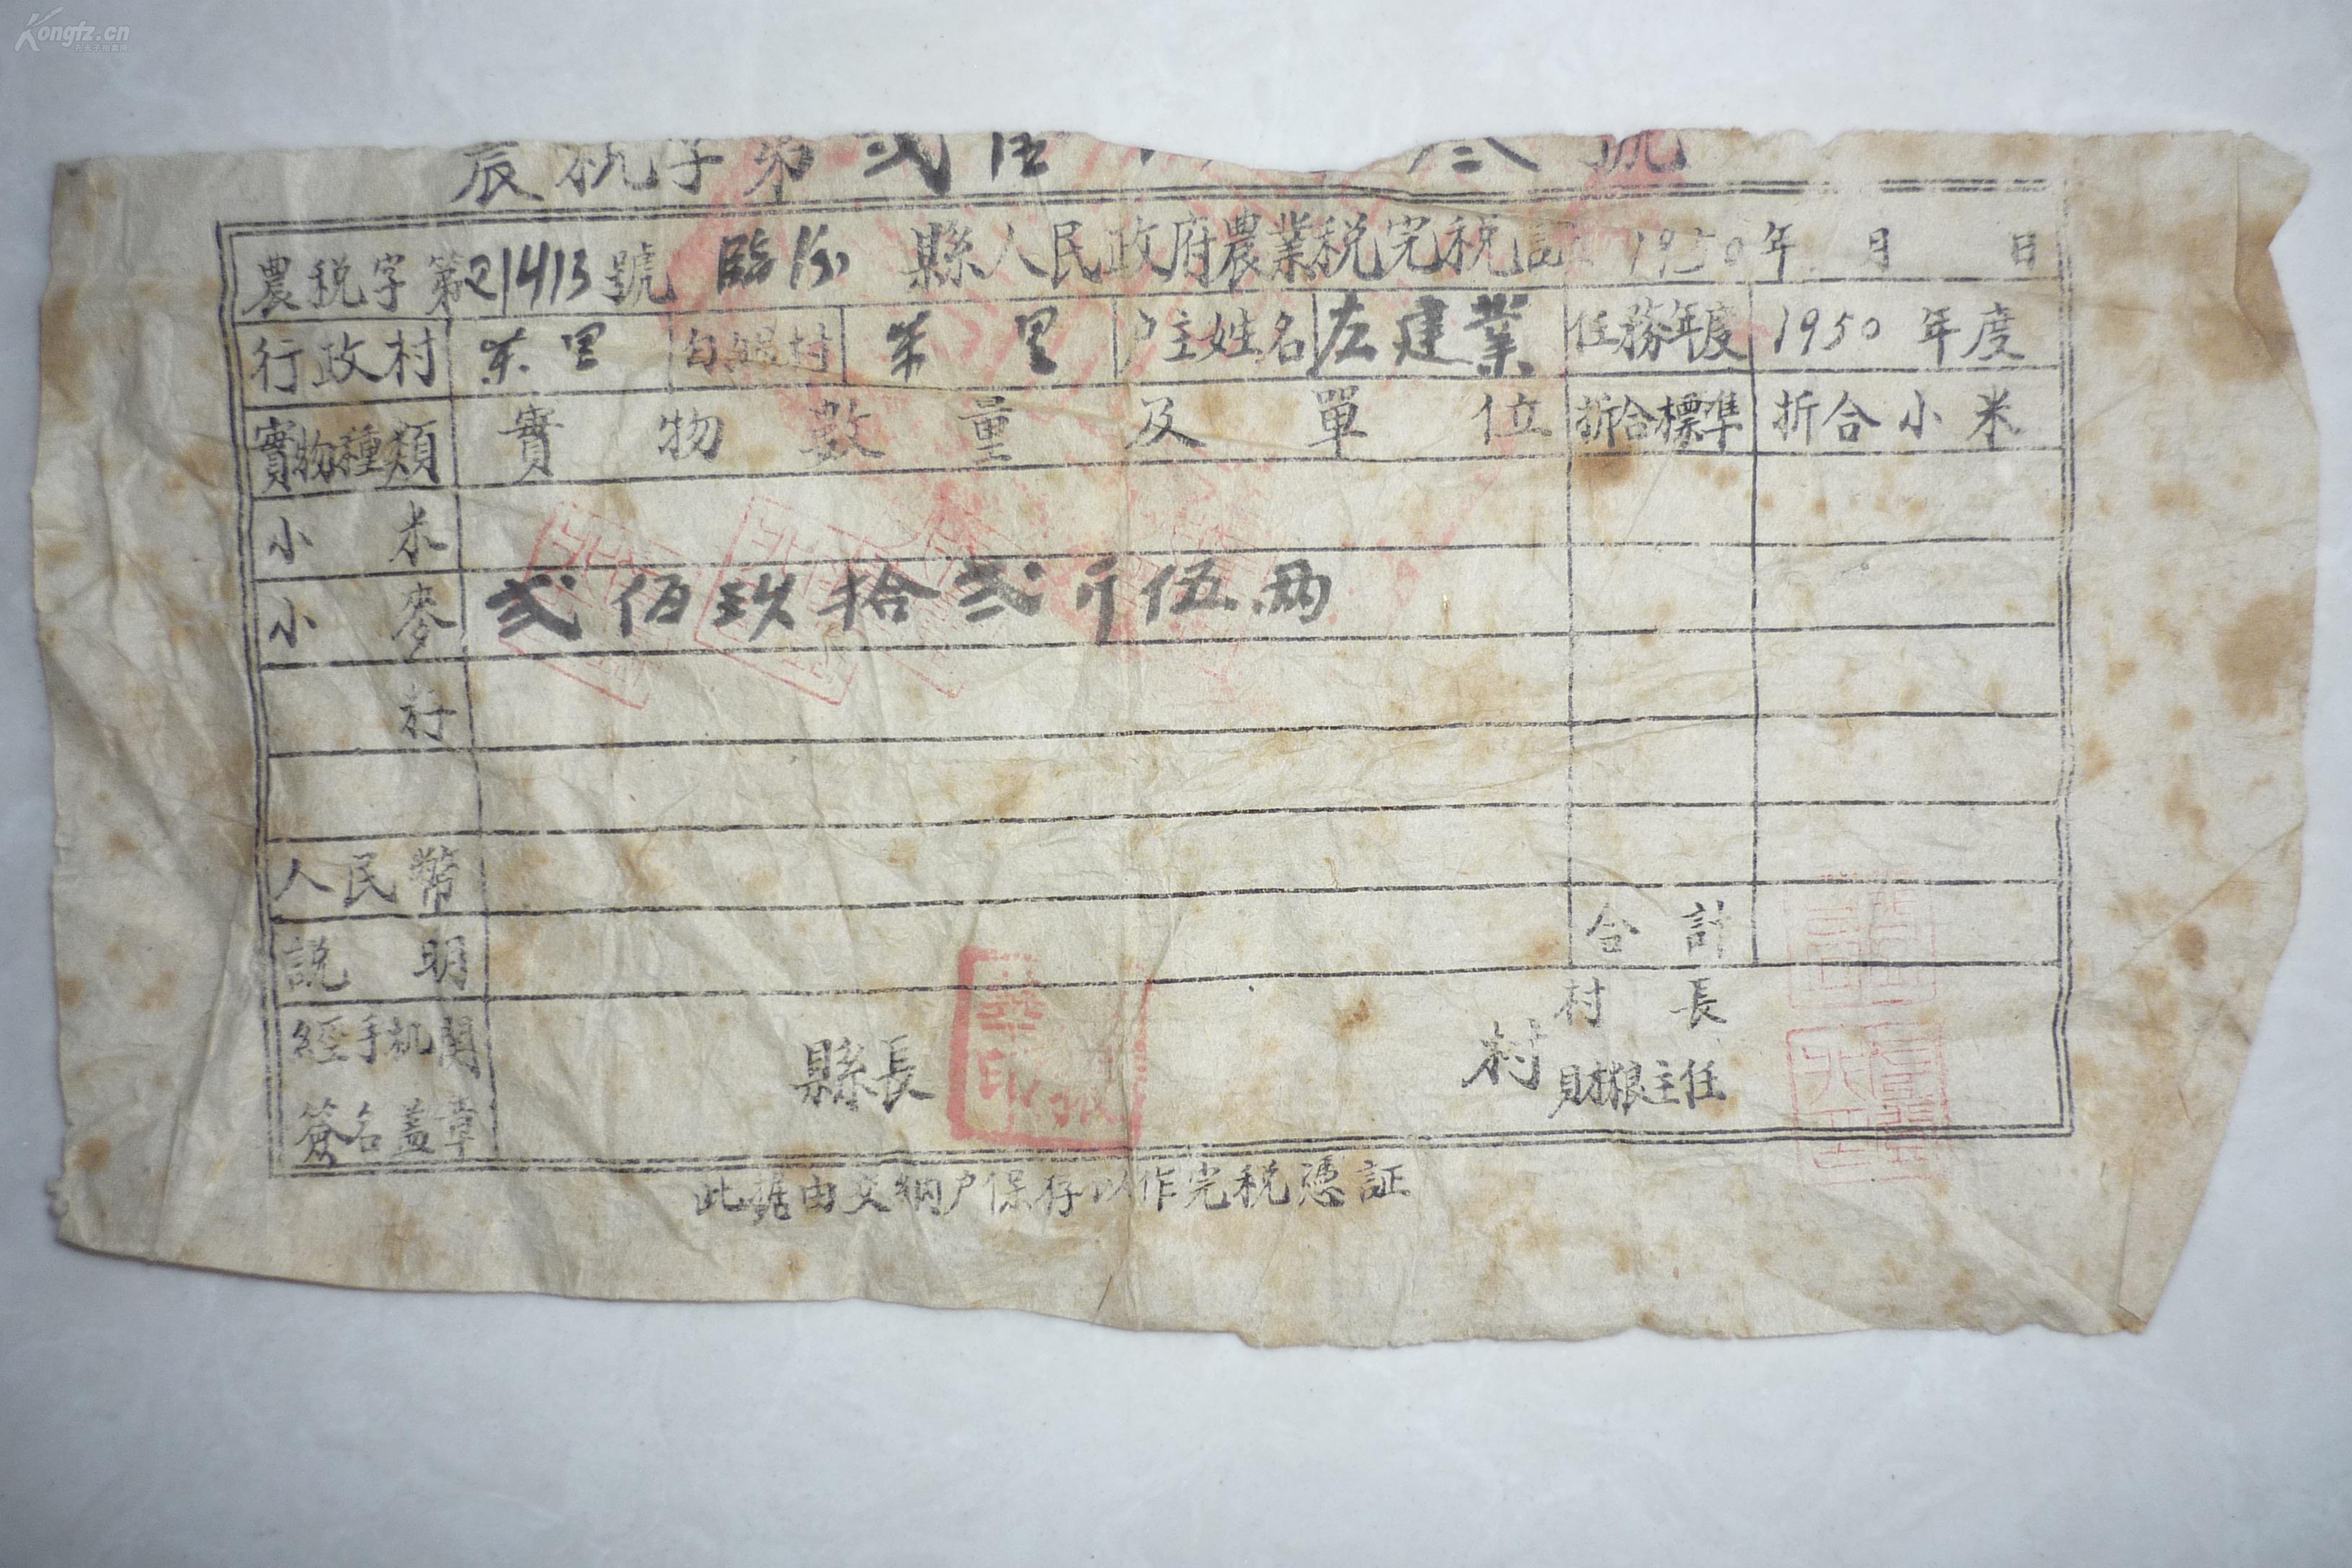 Kongfz.cn
農税字第弍
號
農税字第21413號 臨汾 縣人民政府農業税完税証 1950年 月 日
行政村 里 自然村 里 户主姓名 左建業 任務年度 1950年度
實物種類 實物數量及單位 折合標準 折合小米
小米
小麥 弍佰玖拾弍斤伍両
籽
人民幣
説明 合計
經手机関 縣長 村 村長
簽名盖章 財粮主任
此据由交納户保存以作完税憑証